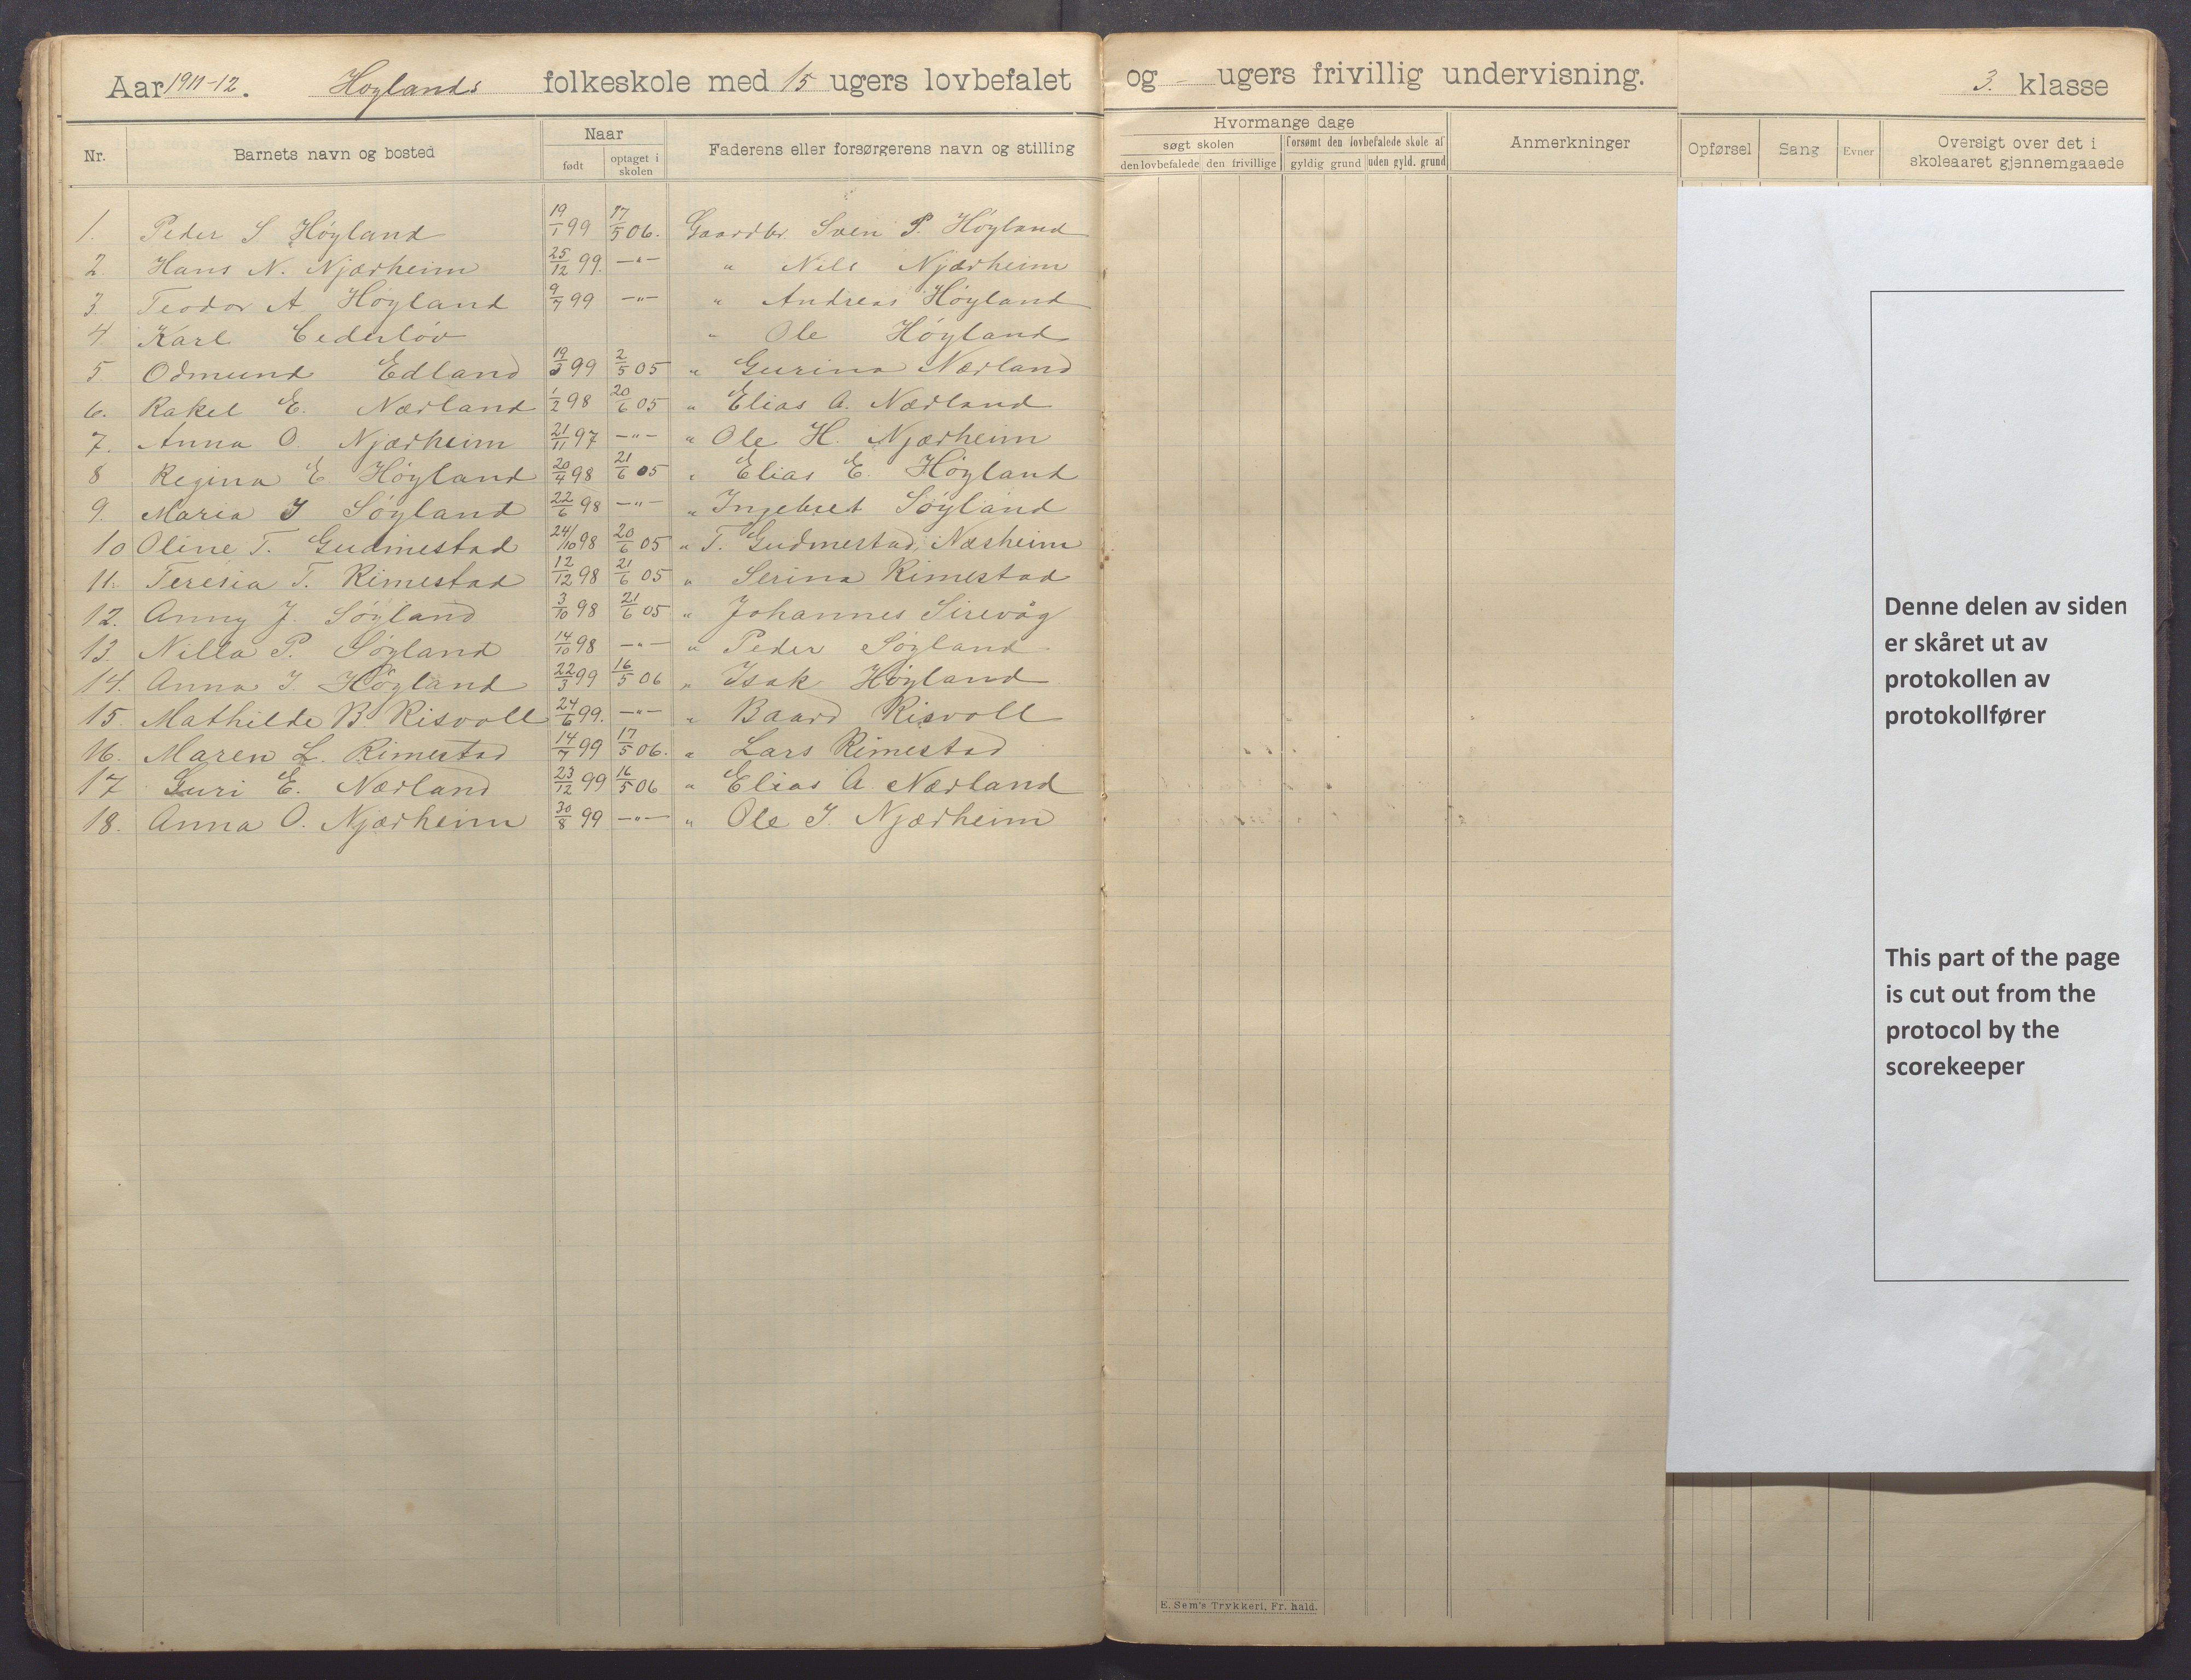 Aar 1911-12. Høylands folkeskole med 15 ugers lovbefalet og - ugers frivillig undervisning. 3. klasse
Nr. Barnets navn og bosted Naar født optaget i skolen Faderens eller forsørgerens navn og stilling Hvormange dage søgt skolen den lovbefalede den frivillige forsømt den lovbefalede skole af gyldig grund uden gyld. grund Anmerkninger Opførsel Sang Evner Oversigt over det i skoleaaret gjennemgaaede
1. Peder S Høyland 19/1 99 17/5 06. Gaardbr. Sven P. Høyland
2. Hans N. Njærheim 25/12 99. —"— " Nils Njærheim
3. Teodor A. Høyland 9/7 99 —"— " Andreas Høyland
4. Karl Cederløv " Ole Høyland
5. Odmund Edland 19/3 99 2/5 05 " Gurina Nærland
6. Rakel E. Nærland 1/2 98 20/6 05 " Elias A. Nærland
7. Anna O. Njærheim 21/11 97 —"— " Ole H. Njærheim
8 Regina E Høyland 20/4 98 21/6 05 " Elias E. Høyland
9. Maria I Søyland 22/6 98 —"— " Ingebret Søyland
10 Oline T. Gudmestad 24/10 98 20/6 05 " T. Gudmestad, Næsheim
11. Teresia T. Rimestad 12/12 98 21/6 05 " Serina Rimestad
12. Anny J. Søyland 3/10 98 21/6 05 " Johannes Sirevåg
13. Nilla P. Søyland 14/10 98 —"— " Peder Søyland
14. Anna I. Høyland 22/3 99 16/5 06 " Isak Høyland
15. Mathilde B. Risvoll 24/6 99. —"— " Baard Risvoll
16. Maren L. Rimestad 14/7 99 17/5 06. " Lars Rimestad
17 Guri E. Nærland 23/12 99 16/5 06 " Elias A. Nærland
18. Anna O. Njærheim 30/8 99 —"— " Ole I. Njærheim
Denne delen av siden
er skåret ut av
protokollen av
protokollfører
This part of the page
is cut out from the
protocol by the
scorekeeper
E. Sem's Trykkeri, Fr. hald.